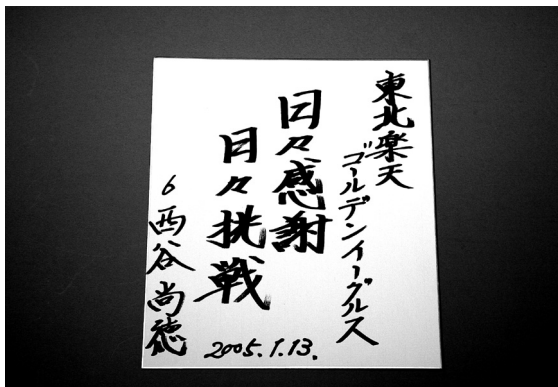 東北楽天
ゴールデンイーグルス
日々感謝
日々挑戦
6 西谷尚徳
2005.1.13.